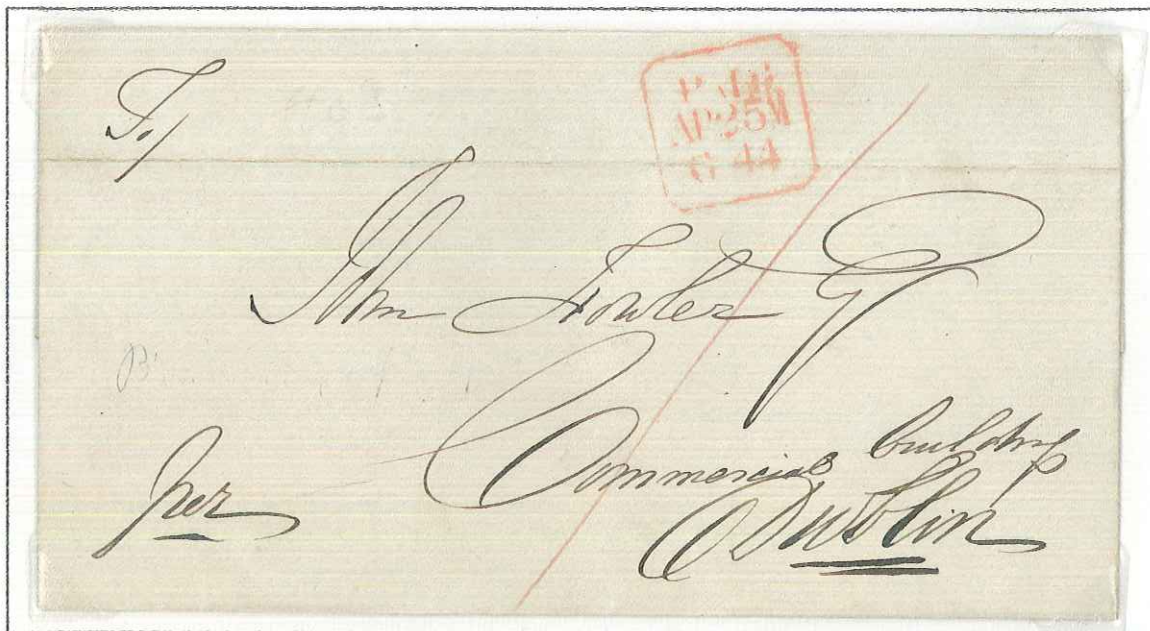 To/
Paid
AP 25M
G 44
John Fowler Esq
Commercial buildings
Dublin
Free